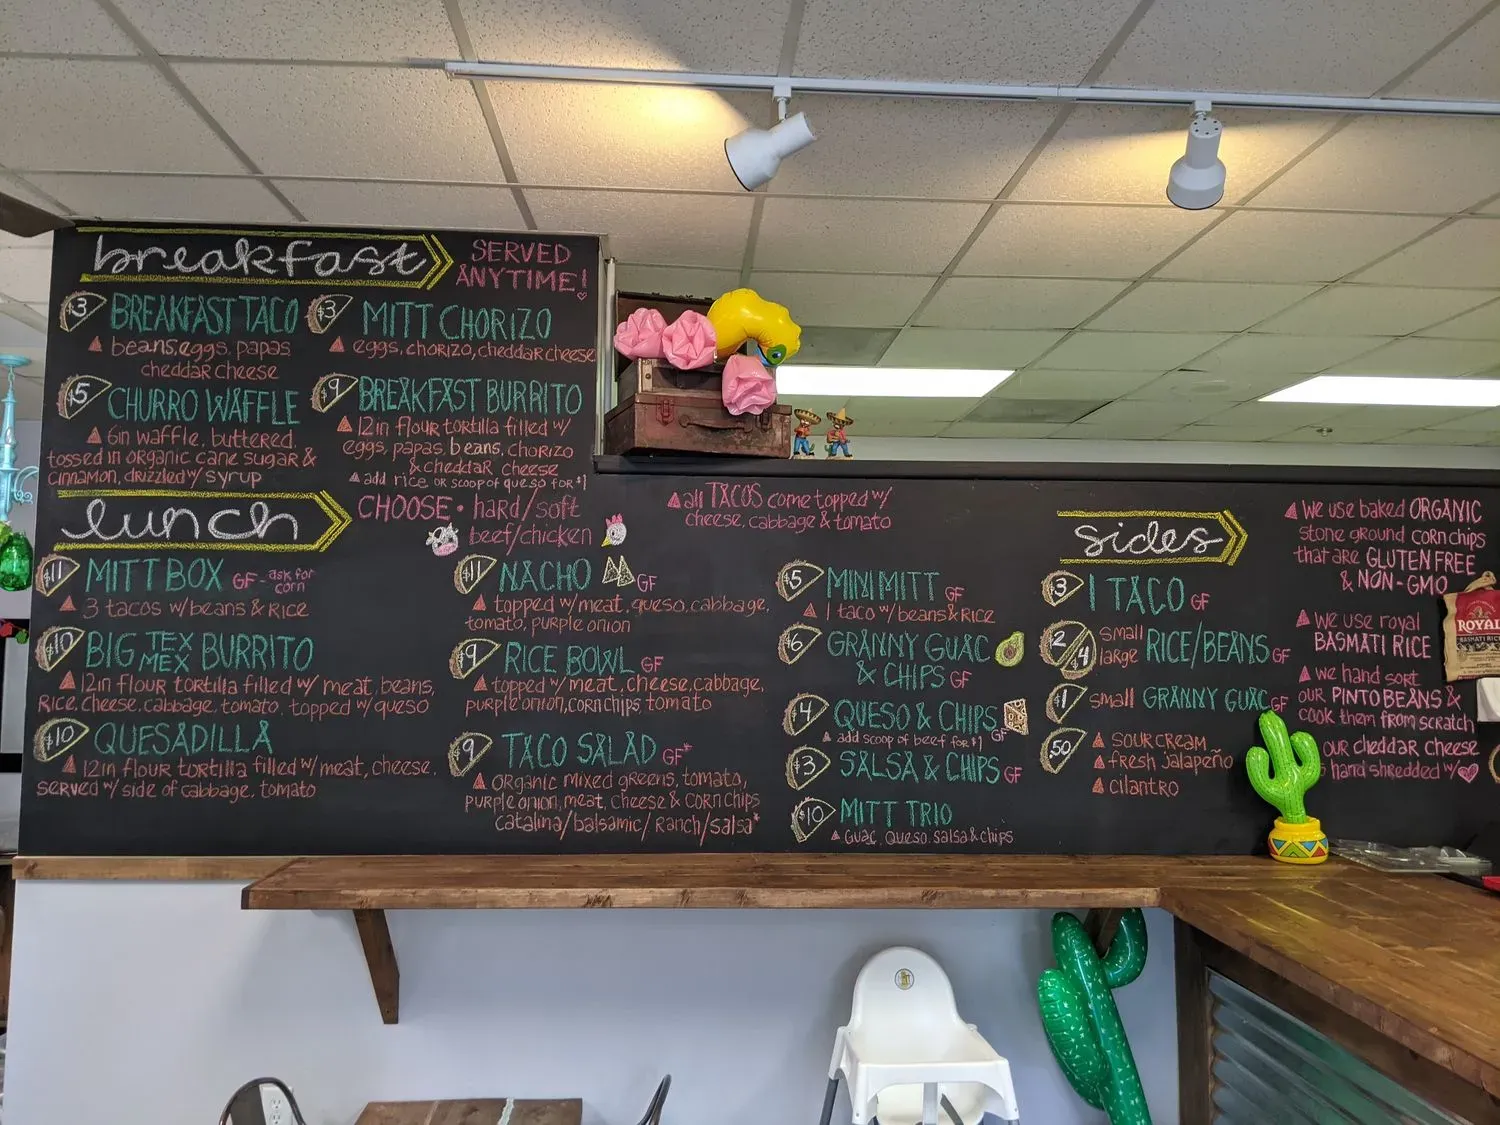 breakfast
SERVED
ANYTIME!
$3 BREAKFAST TACO
beans, eggs, papas
cheddar cheese
$3 MITT CHORIZO
eggs, chorizo, cheddar cheese
$5 CHURRO WAFFLE
6in waffle, buttered,
tossed in organic cane sugar &
cinnamon, drizzled w/ syrup
$9 BREAKFAST BURRITO
12in flour tortilla filled w/
eggs, papas, beans, chorizo
& cheddar cheese
add rice or scoop of queso for $1
lunch
CHOOSE • hard/soft
beef/chicken
all TACOS come topped w/
cheese, cabbage & tomato
$11 MITT BOX GF - ask for
corn
3 tacos w/beans & rice
$10 BIG TEX MEX BURRITO
12in flour tortilla filled w/ meat, beans,
rice, cheese, cabbage, tomato, topped w/ queso
$10 QUESADILLA
12in flour tortilla filled w/ meat, cheese,
served w/ side of cabbage, tomato
$11 NACHO GF
topped w/meat, queso, cabbage,
tomato, purple onion
$9 RICE BOWL GF
topped w/ meat, cheese, cabbage,
purple onion, corn chips, tomato
$9 TACO SALAD GF*
organic mixed greens, tomato,
purple onion, meat, cheese & corn chips
catalina/balsamic/ranch/salsa*
$5 MINI MITT GF
1 taco w/beans & rice
$6 GRANNY GUAC
& CHIPS GF
$4 QUESO & CHIPS GF
add scoop of beef for $1
$3 SALSA & CHIPS GF
$10 MITT TRIO
guac, queso, salsa & chips
sides
$3 1 TACO GF
$2 small
$4 large RICE/BEANS GF
$1 small GRANNY GUAC GF
50 sour cream
fresh jalapeño
cilantro
We use baked ORGANIC
stone ground corn chips
that are GLUTEN FREE
& NON-GMO
We use royal
BASMATI RICE
we hand sort
our PINTO BEANS &
cook them from scratch
our cheddar cheese
hand shredded w/
ROYAL
BASMATI RICE